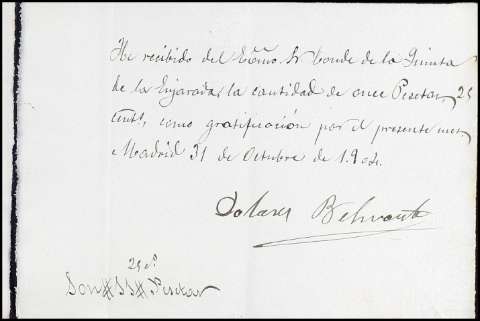 He recibido del Excmo Sr Conde de la Quinta
de la Enjarada, la cantidad de once Pesetas, 25
cents, como gratificación por el presente mes.
Madrid 31 de Octubre de 1.904.
Dolores
25 cs
Son # 11 # Pesetas